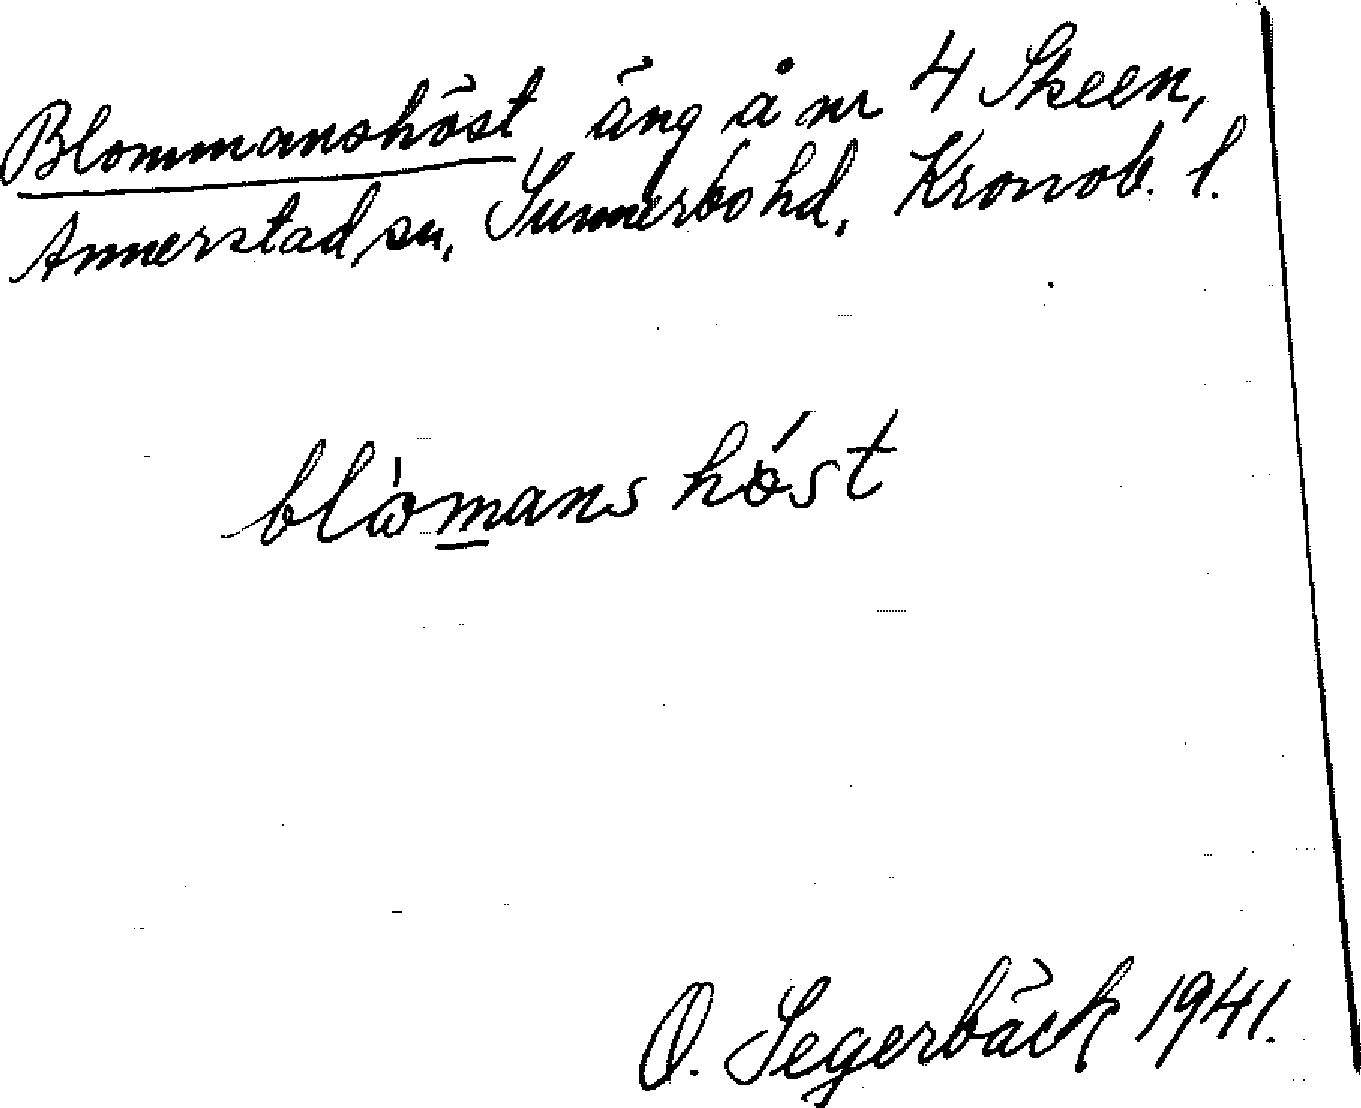 Blommanshöst äng å nr 4 Skeen,
Annerstad sn, Sunnerbo hd, Kronob. l.
blòmans hǿst
O. Segerbäck 1941.